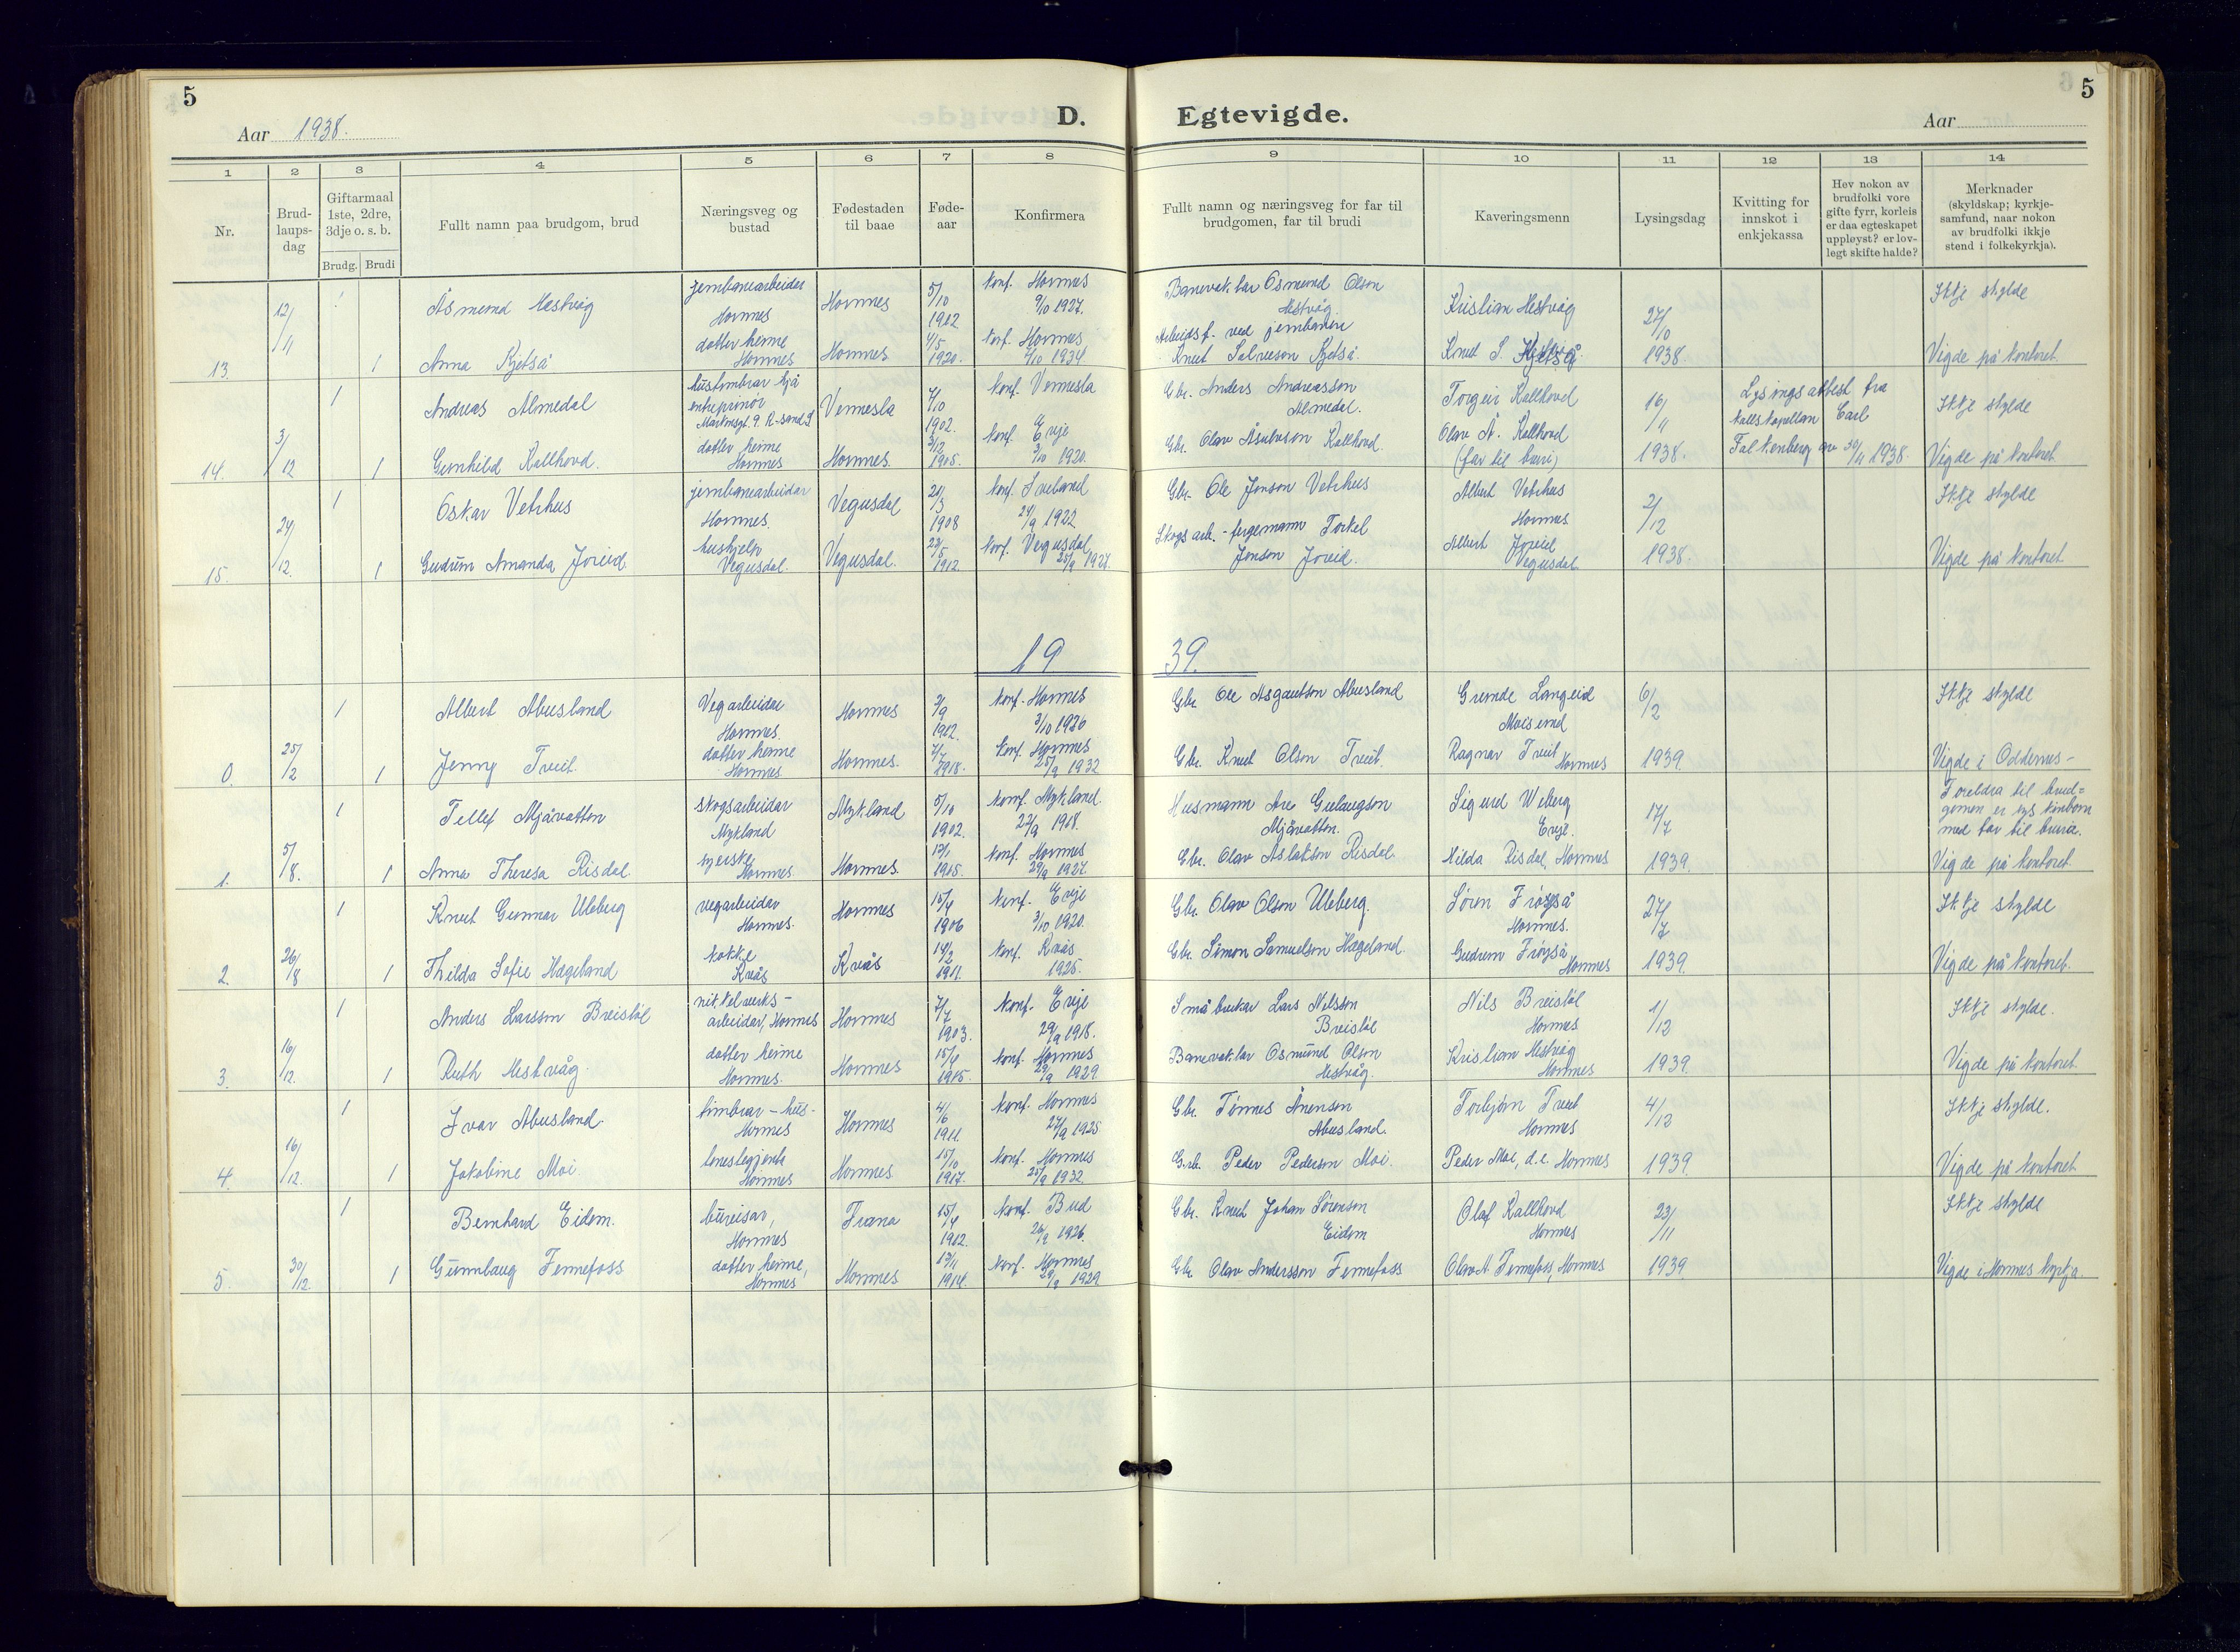 5
Aar 1938.
D. Egtevigde.
Aar
5
1 2 3 4 5 6 7 8 9 10 11 12 13 14
Nr.
Brud-
laups-
dag
Giftarmaal
1ste, 2dre,
3dje o. s. b.
Brudg. Brudi
Fullt namn paa brudgom, brud
Næringsveg og
bustad
Fødestaden
til baae
Føde-
aar
Konfirmera
Fullt namn og næringsveg for far til
brudgomen, far til brudi
Kaveringsmenn
Lysingsdag
Kvitting for
innskot i
enkjekassa
Hev nokon av
brudfolki vore
gifte fyrr, korleis
er daa egteskapet
uppløyst? er lov-
legt skifte halde?
Merknader
(skyldskap; kyrkje-
samfund, naar nokon
av brudfolki ikkje
stend i folkekyrkja).
13. 12/11 1 Åsmund Hestvåg jernbanearbeider Hornnes Hornnes 5/10 1912 konf. Hornnes 9/10 1927. Banevaktar Osmund Olson Hestvåg. Kristian Hestvåg 27/10 1938. Ikkje skylde
1 Anna Kjetså dotter heime Hornnes Hornnes 4/5 1920. konf. Hornnes 7/10 1934 Arbeidsf. ved jernbanen Knut Salveson Kjetså. Knut S. Kjetså. Vigde på kontoret.
14. 3/12 1 Andreas Almedal hustømbrar hjå entreprenør Markensgt. 9. K-sand S Vennesla 7/10 1902. konf. Vennesla Gbr. Anders Andreasson Almedal. Torgeir Kallhovd 16/11 1938. Lysingsattest fra kallskapellan Carl Falkenberg av 30/11 1938. Ikkje skylde
1 Gunhild Kallhovd. dotter heime Hornnes Hornnes. 3/12 1905. konf. Evje 3/10 1920. Gbr. Olav Åsulvson Kallhovd. Olav Å. Kallhovd (far til bruri) Vigde på kontoret
15. 24/12. 1 Oskar Vetrhus jernbanearbeidar Hornnes. Vegusdal 21/3 1908 konf. Iveland 24/9 1922. Gbr. Ole Jonson Vetrhus Albert Vetrhus Hornnes 2/12 1938. Ikkje skylde
1 Gudrun Amanda Joreid hushjelp Vegusdal. Vegusdal. 23/5 1912. konf. Vegusdal 25/9 1927. Skogsarb. - fergemann Torkel Jonson Joreid. Albert Joreid Vegusdal Vigde på kontoret.
19 39.
0. 25/2 1 Albert Abusland Vegarbeidar Hornnes. Hornnes 3/9 1912. konf. Hornnes 3/10 1926 Gbr. Ole Asgautson Abusland Grunde Langeid Moisund 6/2 1939. Ikkje skylde
1 Jenny Tveit. dotter heime Hornnes Hornnes. 7/4 1918. konf. Hornnes 25/9 1932 Gbr. Knut Olson Tveit. Ragnar Tveit Hornnes Vigde i Oddernes -
1. 5/8. 1 Tellef Mjåvatten skogsarbeidar Mykland Mykland 5/10 1902. konf. Mykland. 22/9 1918. Husmann Are Gulaugson Mjåvatten. Sigurd Uleberg Evje. 17/7 1939. Foreldra til brud=gomen er syskinborn med far til bruri.
1 Anna Theresa Risdal syerske Hornnes Hornnes. 13/1 1915. konf. Hornnes 29/9 1927. Gbr. Olav Aslakson Risdal. Hilda Risdal, Hornnes Vigde på kontoret.
2. 26/8 1 Knut Gunnar Uleberg vegarbeidar Hornnes. Hornnes 15/4 1906 konf. Evje 3/10 1920. Gbr. Olav Olson Uleberg. Søren Frøyså Hornnes. 27/7 1939. Ikkje skylde
1 Thilda Sofie Hageland kokke Kvås Kvås 14/2 1911. konf. Kvås 1925. Gbr. Simon Samuelson Hageland. Gudrun Frøyså Hornnes Vigde på kontoret.
3. 16/12. 1 Anders Larsson Breistøl nikkelverks-arbeidar, Hornnes Hornnes 7/7 1903. konf. Evje 29/9 1918. Småbrukar Lars Nilsson Breistøl Nils Breistøl Hornnes 1/12 1939. Ikkje skylde.
1 Ruth Hestvåg. dotter heime Hornnes. Hornnes 15/4 1915. konf. Hornnes 29/9 1929 Banevaktar Osmund Olson Hestvåg. Kristian Hestvåg Hornnes Vigde på kontoret.
4. 16/12. 1 Ivar Abusland. timbrar - hus - Hornnes Hornnes 4/6 1911. konf. Hornnes 27/9 1925 Gbr. Tønnes Ånenson Abusland. Torbjørn Tveit Hornnes 4/12 1939. Ikkje skylde.
1 Jakobine Moi Hornnes Hornnes 15/10 1917. konf. Hornnes 25/9 1932. Grb. Peder Pederson Moi. Peder Moi, d.e. Hornnes Vigde på kontoret.
5. 30/12. 1 Bernhard Eidem. bureisar, Hornnes Fræna 15/4 1912. konf. Bud 26/9 1926. Gbr. Knut Johan Sørenson Eidem Olaf Kallhovd Hornnes 23/11 1939. Ikkje skylde
1 Gunnlaug Fennefoss dotter heime, Hornnes Hornnes 13/11 1914. konf. Hornnes 29/9 1929. Gbr. Olav Andersson Fennefoss Olav A. Fennefoss, Hornnes Vigde i Hornnes kyrkja.